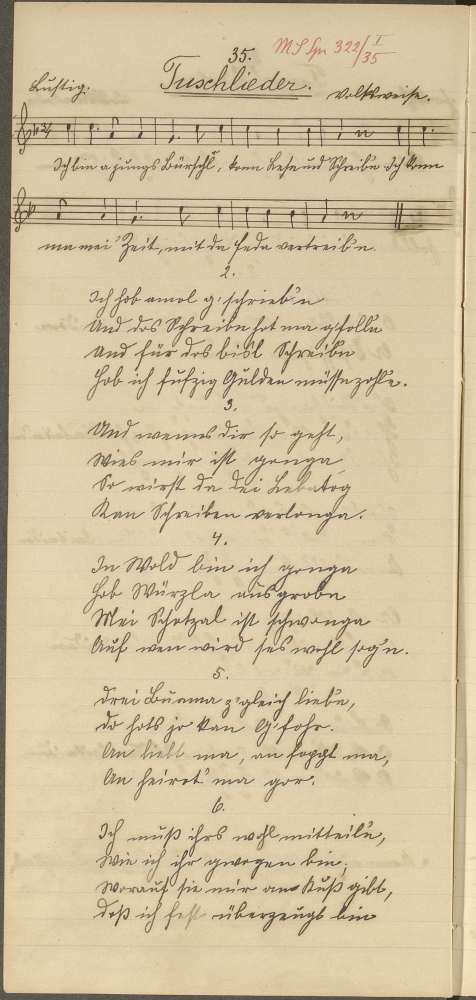 35.
Tuschlieder.
Lustig.
Volksweise.
Ich bin a jungs Bürschl, konn Lesn und Schreibn Ich konn
ma mei' Zeit, mit da Feda vertreib'n
2.
Ich hob amol g'schrieb'n
Und dos Schreibn hot ma g'folln
Und für dos bisl Schreibn
Hob ich fufzig Gulden müssn zohln.
3.
Und wenns dir so geht,
Wies mir ist gonga
So wirst da Dei Lebatog
Kan Schreiben verlonga.
4.
In Wold bin ich gonga
Hob Würzla ausgrobn
Mei Schotzal ist schwonga
Auf wen wird ses wohl sog'n.
5.
Drei Buama z'gleich liebn,
do hots jo kan G'fohr.
An liebt ma, an foppt ma,
An heirot' ma gor.
6.
Ich muß ihrs wohl mitteiln,
Wie ich ihr gwogen bin,
Worauf sie mir an Kuß gibt,
Daß ich fest überzeugt bin